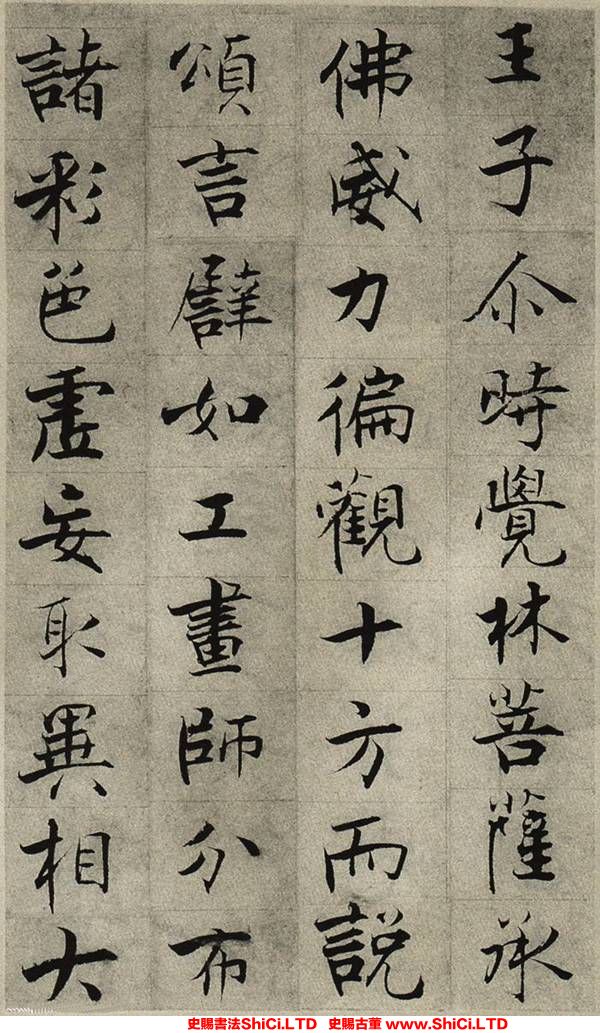 王子尒時覺林菩薩承
佛威力徧觀十方而説
頌言譬如工畫師分布
諸彩色虛妄取異相大
史賜書法ShiCi.LTD 史賜古董 www.ShiCi.LTD